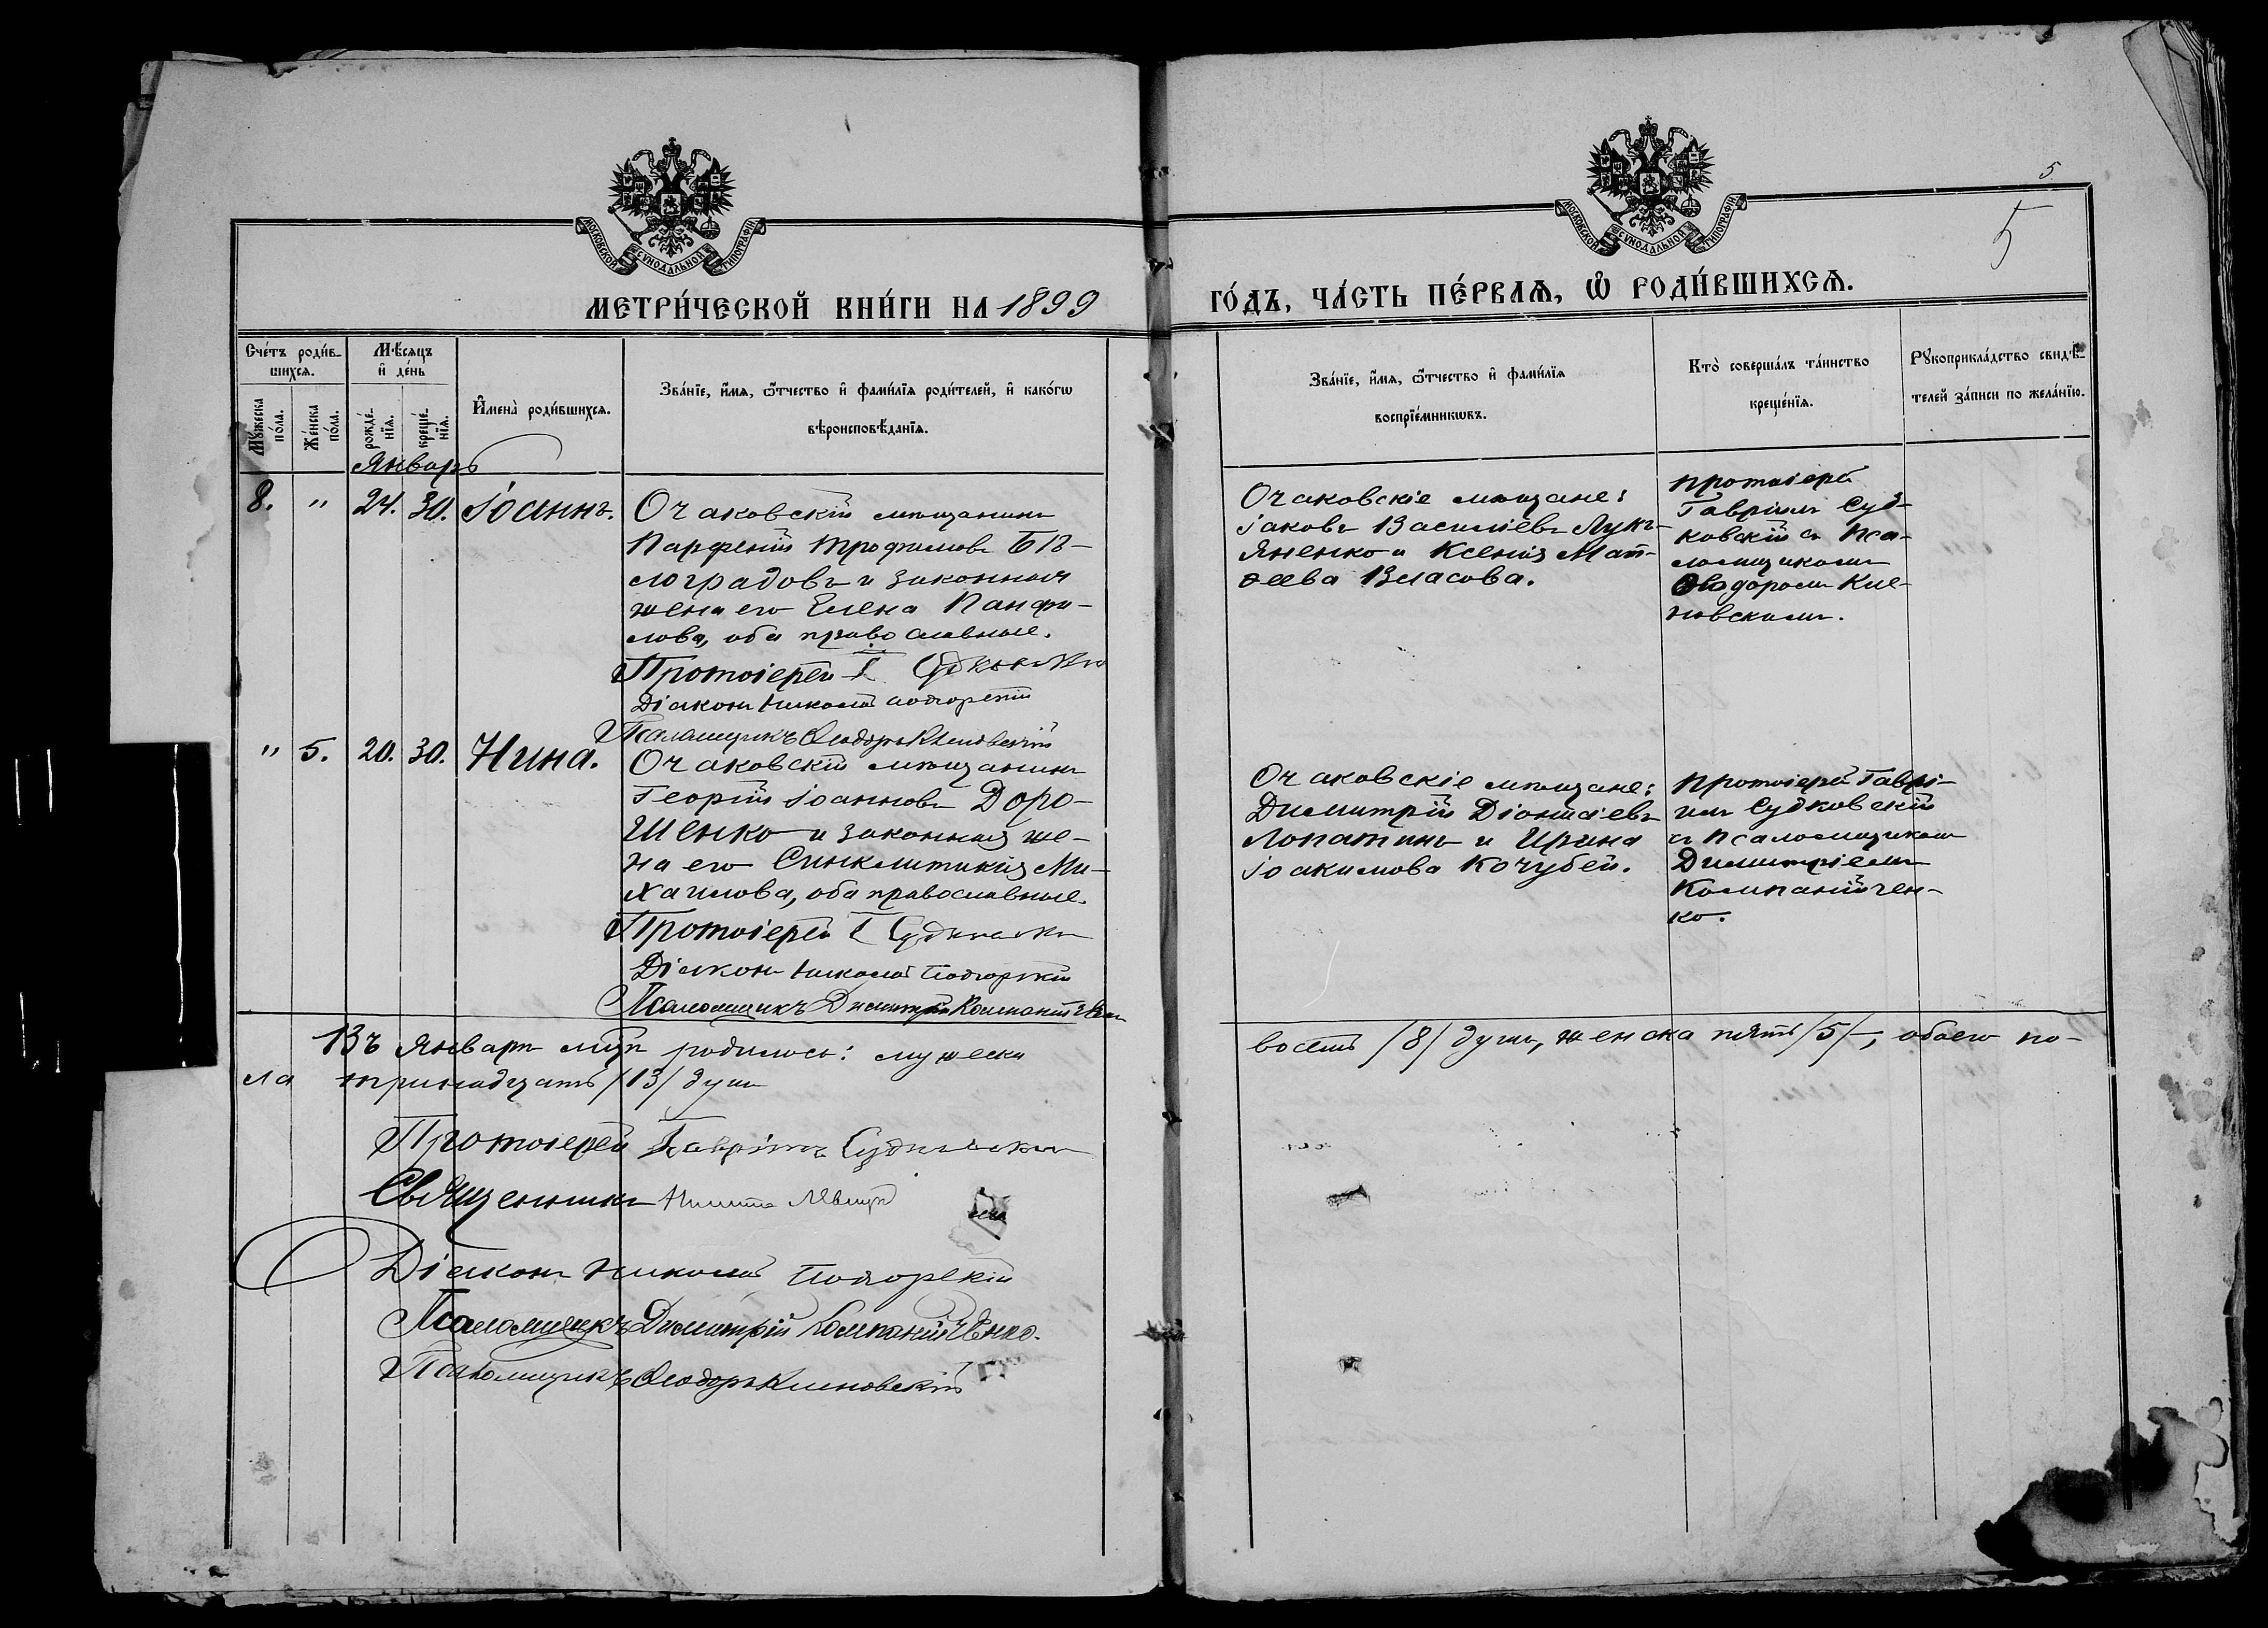 5
5
МОСКОВСКОЙ СѴНОДАЛЬНОЙ ТИПОГРАФІИ
МОСКОВСКОЙ СѴНОДАЛЬНОЙ ТИПОГРАФІИ
МЕТРИ́ЧЕСКОЙ КНИ́ГИ НА 1899
ГО́ДЪ, ЧА́СТЬ ПЕ́РВАѦ, Ѿ РОДИ́ВШИХСѦ.
Сче́тъ роди́в-
шихсѧ.
Мѣ́сѧцъ
и҆ де́нь
Мꙋ́жеска
по́ла.
Же́нска
по́ла.
рожде́-
нїѧ.
креще́-
нїѧ.
И҆мена̀ роди́вшихсѧ.
Зва́нїе, и҆́мѧ, ѻ҆́тчество и҆ фами́лїѧ роди́телей, и҆ како́гѡ
вѣроисповѣ́данїѧ.
Зва́нїе, и҆́мѧ, ѻ҆́тчество и҆ фами́лїѧ
воспрїе́мникѡвъ.
Кто̀ соверша́лъ та́инство
креще́нїѧ.
Рꙋкоприкла́дство свидѣ́-
телей за́писи по жела́нїю.
Январь
8. " 24. 30. Іоаннъ.
Очаковскій мѣщанинъ
Парфеній Трофимовъ Бѣ-
лоградовъ и законная
жена его Елена Панфи-
лова, оба православные.
Протоіерей Г. Судковскій
Діаконъ Николай Подгорскій
Псаломщикъ Ѳеодоръ Клиновскій
Очаковскіе мѣщане:
Іаковъ Василіевъ Лукъ-
яненко и Ксенія Мат-
ѳеева Власова.
Протоіерей
Гавріилъ Суд-
ковскій съ Пса-
ломщикомъ
Ѳеодоромъ Кли-
новскимъ.
" 5. 20. 30. Нина.
Очаковскій мѣщанинъ
Георгій Іоанновъ Доро-
шенко и законная же-
на его Синклитикія Ми-
хаилова, оба православные.
Протоіерей Г Судковскій
Діаконъ Николай Подгорскій
Псаломщикъ Димитрій Компанійченко
Очаковскіе мѣщане:
Димитрій Діонисіевъ
Лопатинъ и Ирина
Іоакимова Кочубей.
Протоіерей Гаврі-
илъ Судковскій
съ Псаломщикомъ
Димитріемъ
Компанійчен-
ко.
Въ Январѣ мѣсяцѣ родилось: мужеска
восемь /8/ душъ, женска пять /5/ –, обоего по-
ла тринадцать /13/ душъ
Протоіерей Гавріилъ Судковскій
Священникъ Никита
Діаконъ Николай Подгорскій
Псаломщикъ Димитрій Компанійченко.
Псаломщикъ Ѳеодоръ Клиновскій